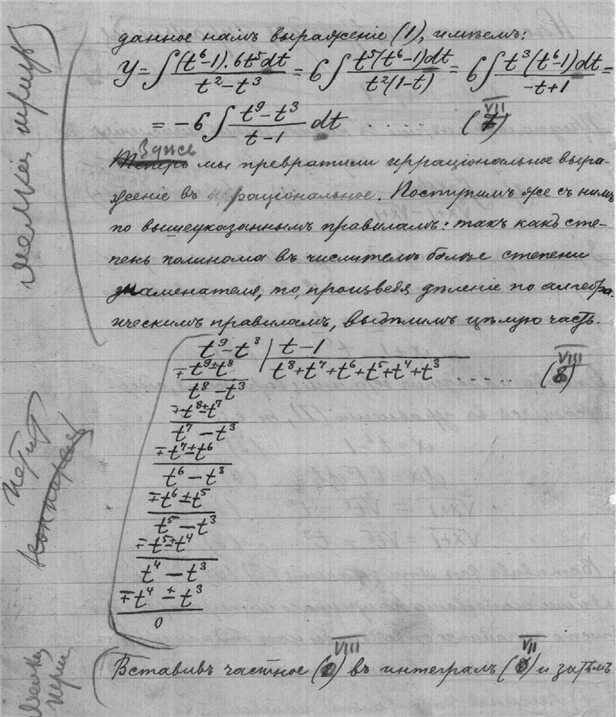 данное намъ выраженіе (1), имѣемъ:
y = ∫ (t⁶-1).6t⁵dt / t²-t³ = 6∫ t⁵(t⁶-1)dt / t²(1-t) = 6∫ t³(t⁶-1)dt / -t+1 =
= -6 ∫ t⁹-t³ / t-1 dt . . . . . (VII)
Здѣсь
мы превратили ирраціональное выра-
женіе въ раціональное. Поступимъ же съ нимъ
по вышеуказаннымъ правиламъ: такъ какъ сте-
пень полинома въ числителѣ болѣе степени
знаменателя, то, произведя дѣленіе по алгебра-
ическимъ правиламъ, выдѣлимъ цѣлую часть.
t⁹-t³ | t-1
∓t⁹±t⁸ t⁸+t⁷+t⁶+t⁵+t⁴+t³ . . . . . (VIII)
t⁸-t³
∓t⁸±t⁷
t⁷-t³
∓t⁷±t⁶
t⁶-t³
∓t⁶±t⁵
t⁵-t³
∓t⁵±t⁴
t⁴-t³
∓t⁴±t³
0
Вставивъ частное (VIII) въ интегралъ (VII) и затѣмъ
петит